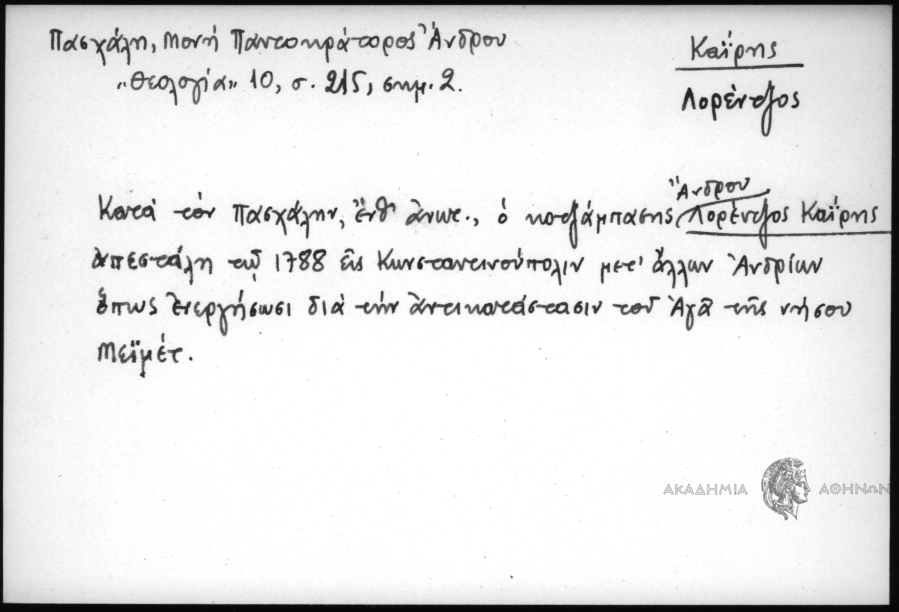 Πασχάλη, Μονή Παντοκράτορος Ἄνδρου
„Θεολογία" 10, σ. 215, σημ. 2.
Καΐρης
Λορέντζος
Κατὰ τὸν Πασχάλην, ἔνθ' ἀνωτ., ὁ κοτζάμπασης Ἄνδρου Λορέντζος Καΐρης
ἀπεστάλη τῷ 1788 εἰς Κωνσταντινούπολιν μετ' ἄλλων Ἀνδρίων
ὅπως ἐνεργήσωσι διὰ τὴν ἀντικατάστασιν τοῦ Ἀγᾶ τῆς νήσου
Μεϊμέτ.
ΑΚΑΔΗΜΙΑ ΑΘΗΝΩΝ